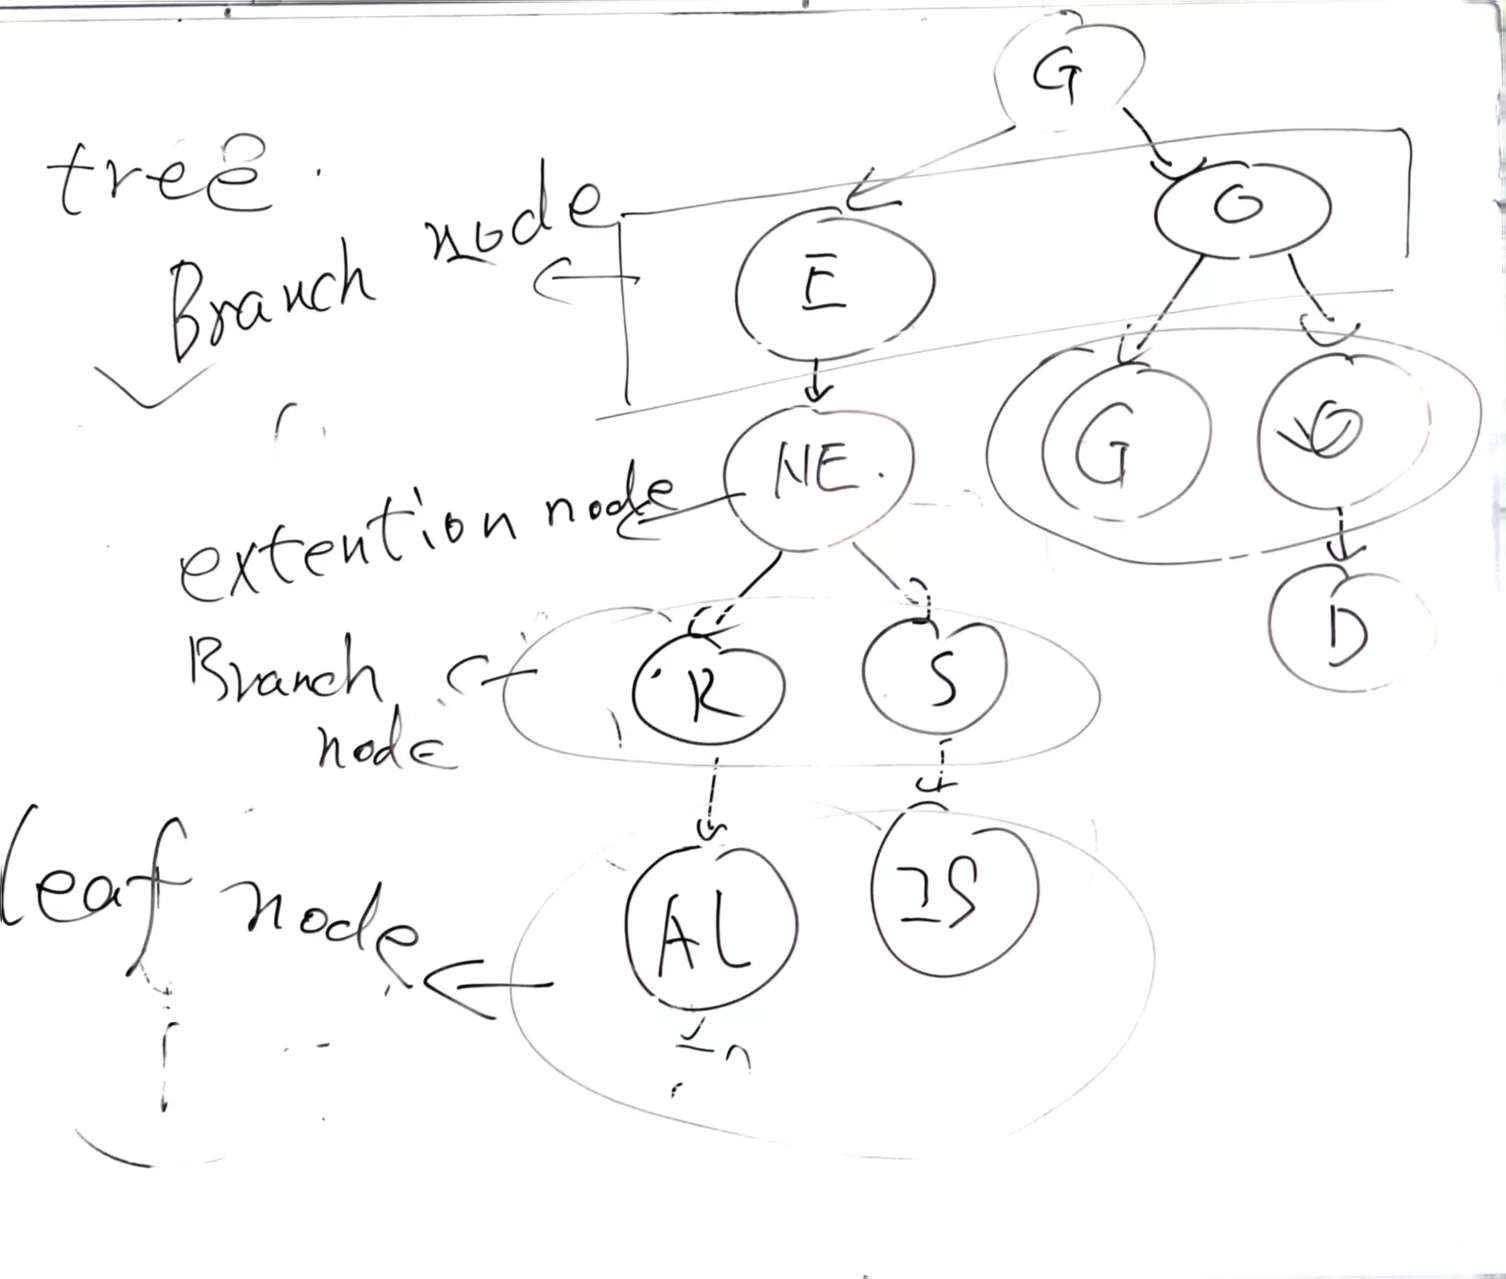 G
tree.
Branch node
O
E
G
O
NE.
extention node
D
Branch
node
R
S
leaf node
AL
IS